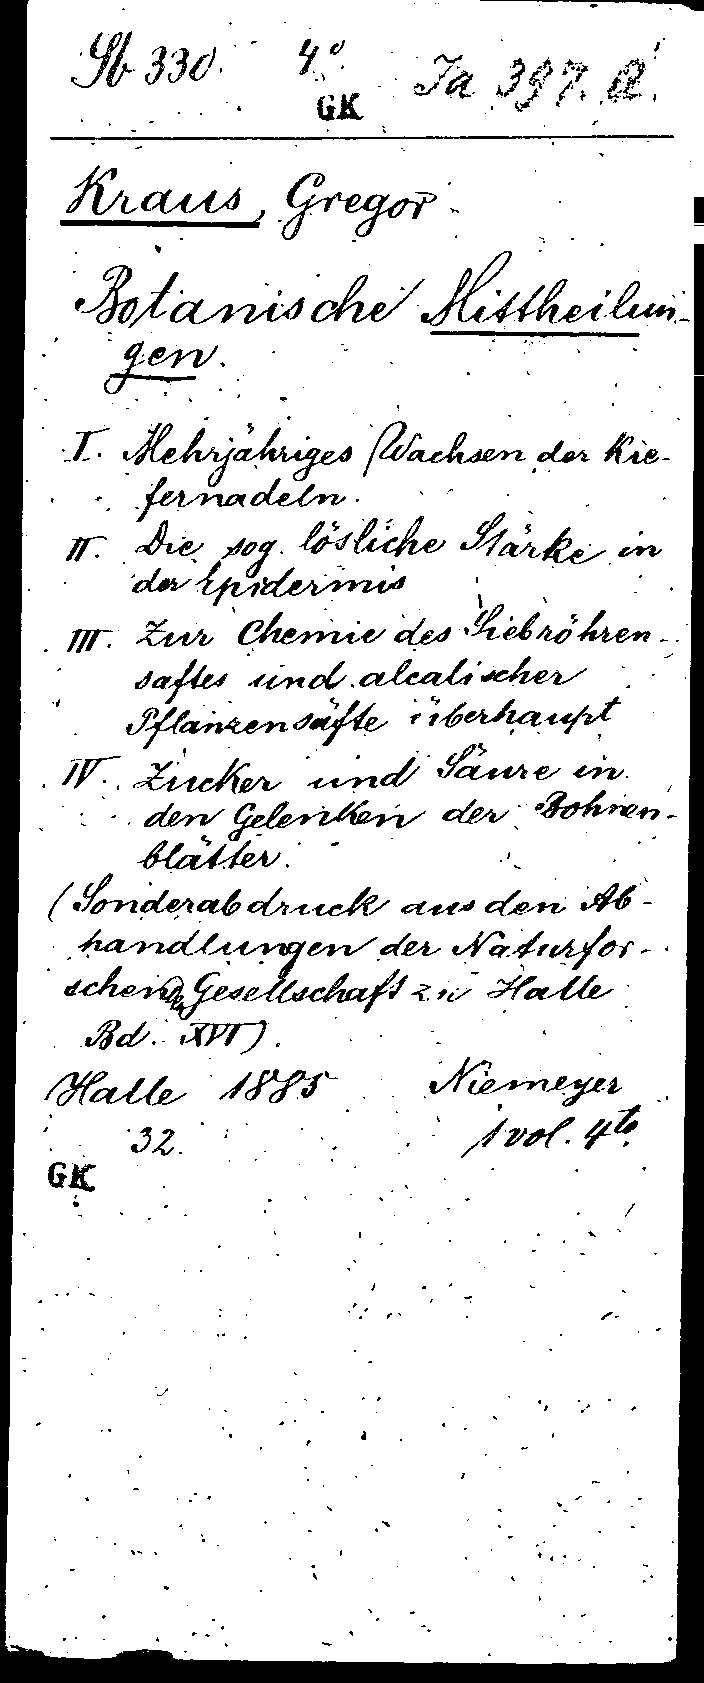 Sb 330. 4° Ja 397. a.
GK
Kraus, Gregor
Botanische Mittheilun-
gen.
I. Mehrjähriges Wachsen der Kie-
fernadeln.
II. Die sog. lösliche Stärke in
der Epidermis
III. Zur Chemie des Siebröhren-
saftes und alcalischer
Pflanzensäfte überhaupt
IV. Zucker und Säure in
den Gelenken der Bohnen-
blätter.
(Sonderabdruck aus den Ab-
handlungen der Naturfor-
schenden Gesellschaft zu Halle
Bd. XVI).
Halle 1885 Niemeyer
32. 1 vol. 4to.
GK